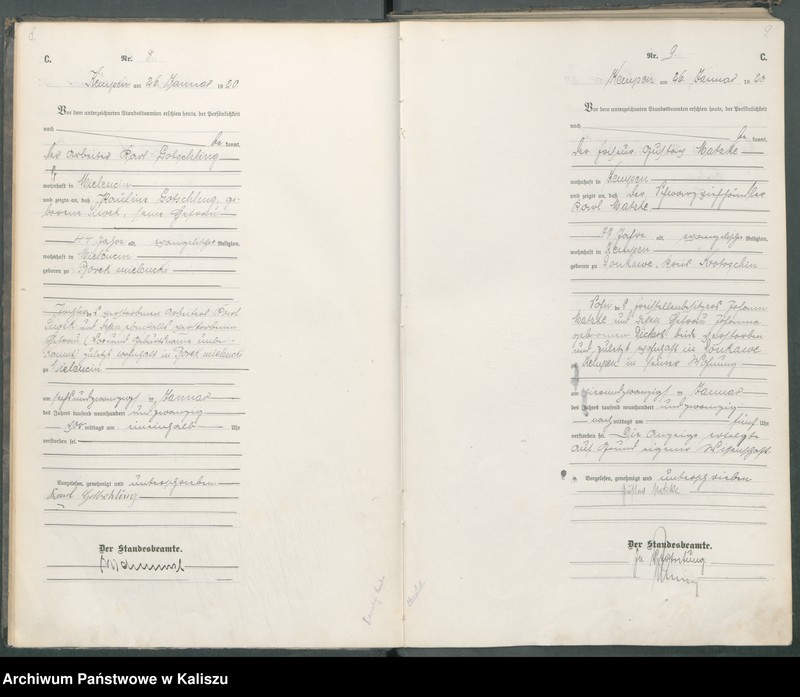 8.
C.
Nr. 8
Kempen am 26. Januar 1920
Vor dem unterzeichneten Standesbeamten erschien heute, der Persönlichkeit
nach
be kannt,
der Arbeiter Karl Gotschling
wohnhaft in Mielencin
und zeigte an, daß Pauline Gotschling, ge-
borene, seine Ehefrau
44 Jahre alt, evangelischer Religion,
wohnhaft in Mielencin
geboren zu Borek mielencki
Tochter des verstorbenen Arbeiters Karl
und dessen ebenfalls verstorbenen
Ehefrau (Vor und Geburtsname unbe-
kannt zuletzt wohnhaft in Borek mielencki
zu Mielencin
am sechsundzwanzigsten Januar
des Jahres tausend neunhundert und zwanzig
vor mittags um Uhr
verstorben sei.
Vorgelesen, genehmigt und unterschrieben
Karl Gotschling
Der Standesbeamte.
9.
Nr. 9
C.
Kempen am 26. Januar 1920
Vor dem unterzeichneten Standesbeamten erschien heute, der Persönlichkeit
nach
be kannt,
der Friseur Gustav Matzke
wohnhaft in Kempen
und zeigte an, daß der
Karl Matzke
Jahre alt, evangelischer Religion,
wohnhaft in Kempen
geboren zu Konkawe, Kreis Krotoschin
Sohn des Freistellenbesitzers Johann
Matzke und dessen Ehefrau Johanna
geborenen beide verstorben
und zuletzt wohnhaft in Konkawe
zu Kempen in seiner Wohnung
am vierundzwanzigsten Januar
des Jahres tausend neunhundert und zwanzig
nach mittags um fünf Uhr
verstorben sei. Die Anzeige erfolgte
aus Grund eigener Wissenschaft.
Vorgelesen, genehmigt und unterschrieben
Gustav Matzke
Der Standesbeamte.
In Vertretung
Archiwum Państwowe w Kaliszu